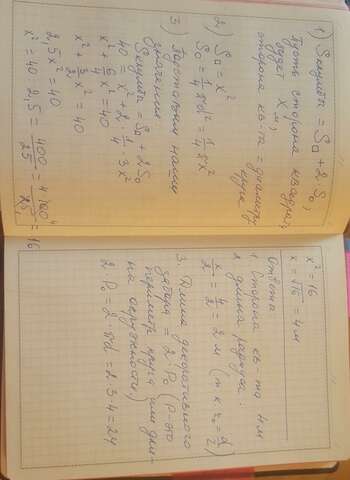 1) Sклумбы = S□ + 2S○,
Пусть сторона квадрата
будет x м,
сторона кв-та = диаметру
круга
2) S□ = x²
S○ = 1/4 πd² = 1/4 πx²
3) Подставим наши
значения
Sклумбы = S□ + 2S○
40 = x² + 2 · 1/4 · 3x²
x² + 6/4 x² = 40
x² + 3/2 x² = 40
2,5x² = 40
x² = 40 : 2,5 = 400/25 = 16
x² = 16
x = √16 = 4 м
Ответы
1. Сторона кв-та 4 м
2. Длина радиуса:
x/2 = 4/2 = 2 м (т к r○ = d/2)
3. Длина декоративного
забора = 2·P○ (P-это
периметр круга или дли-
на окружности)
2·P○ = 2·πd = 2·3·4 = 24